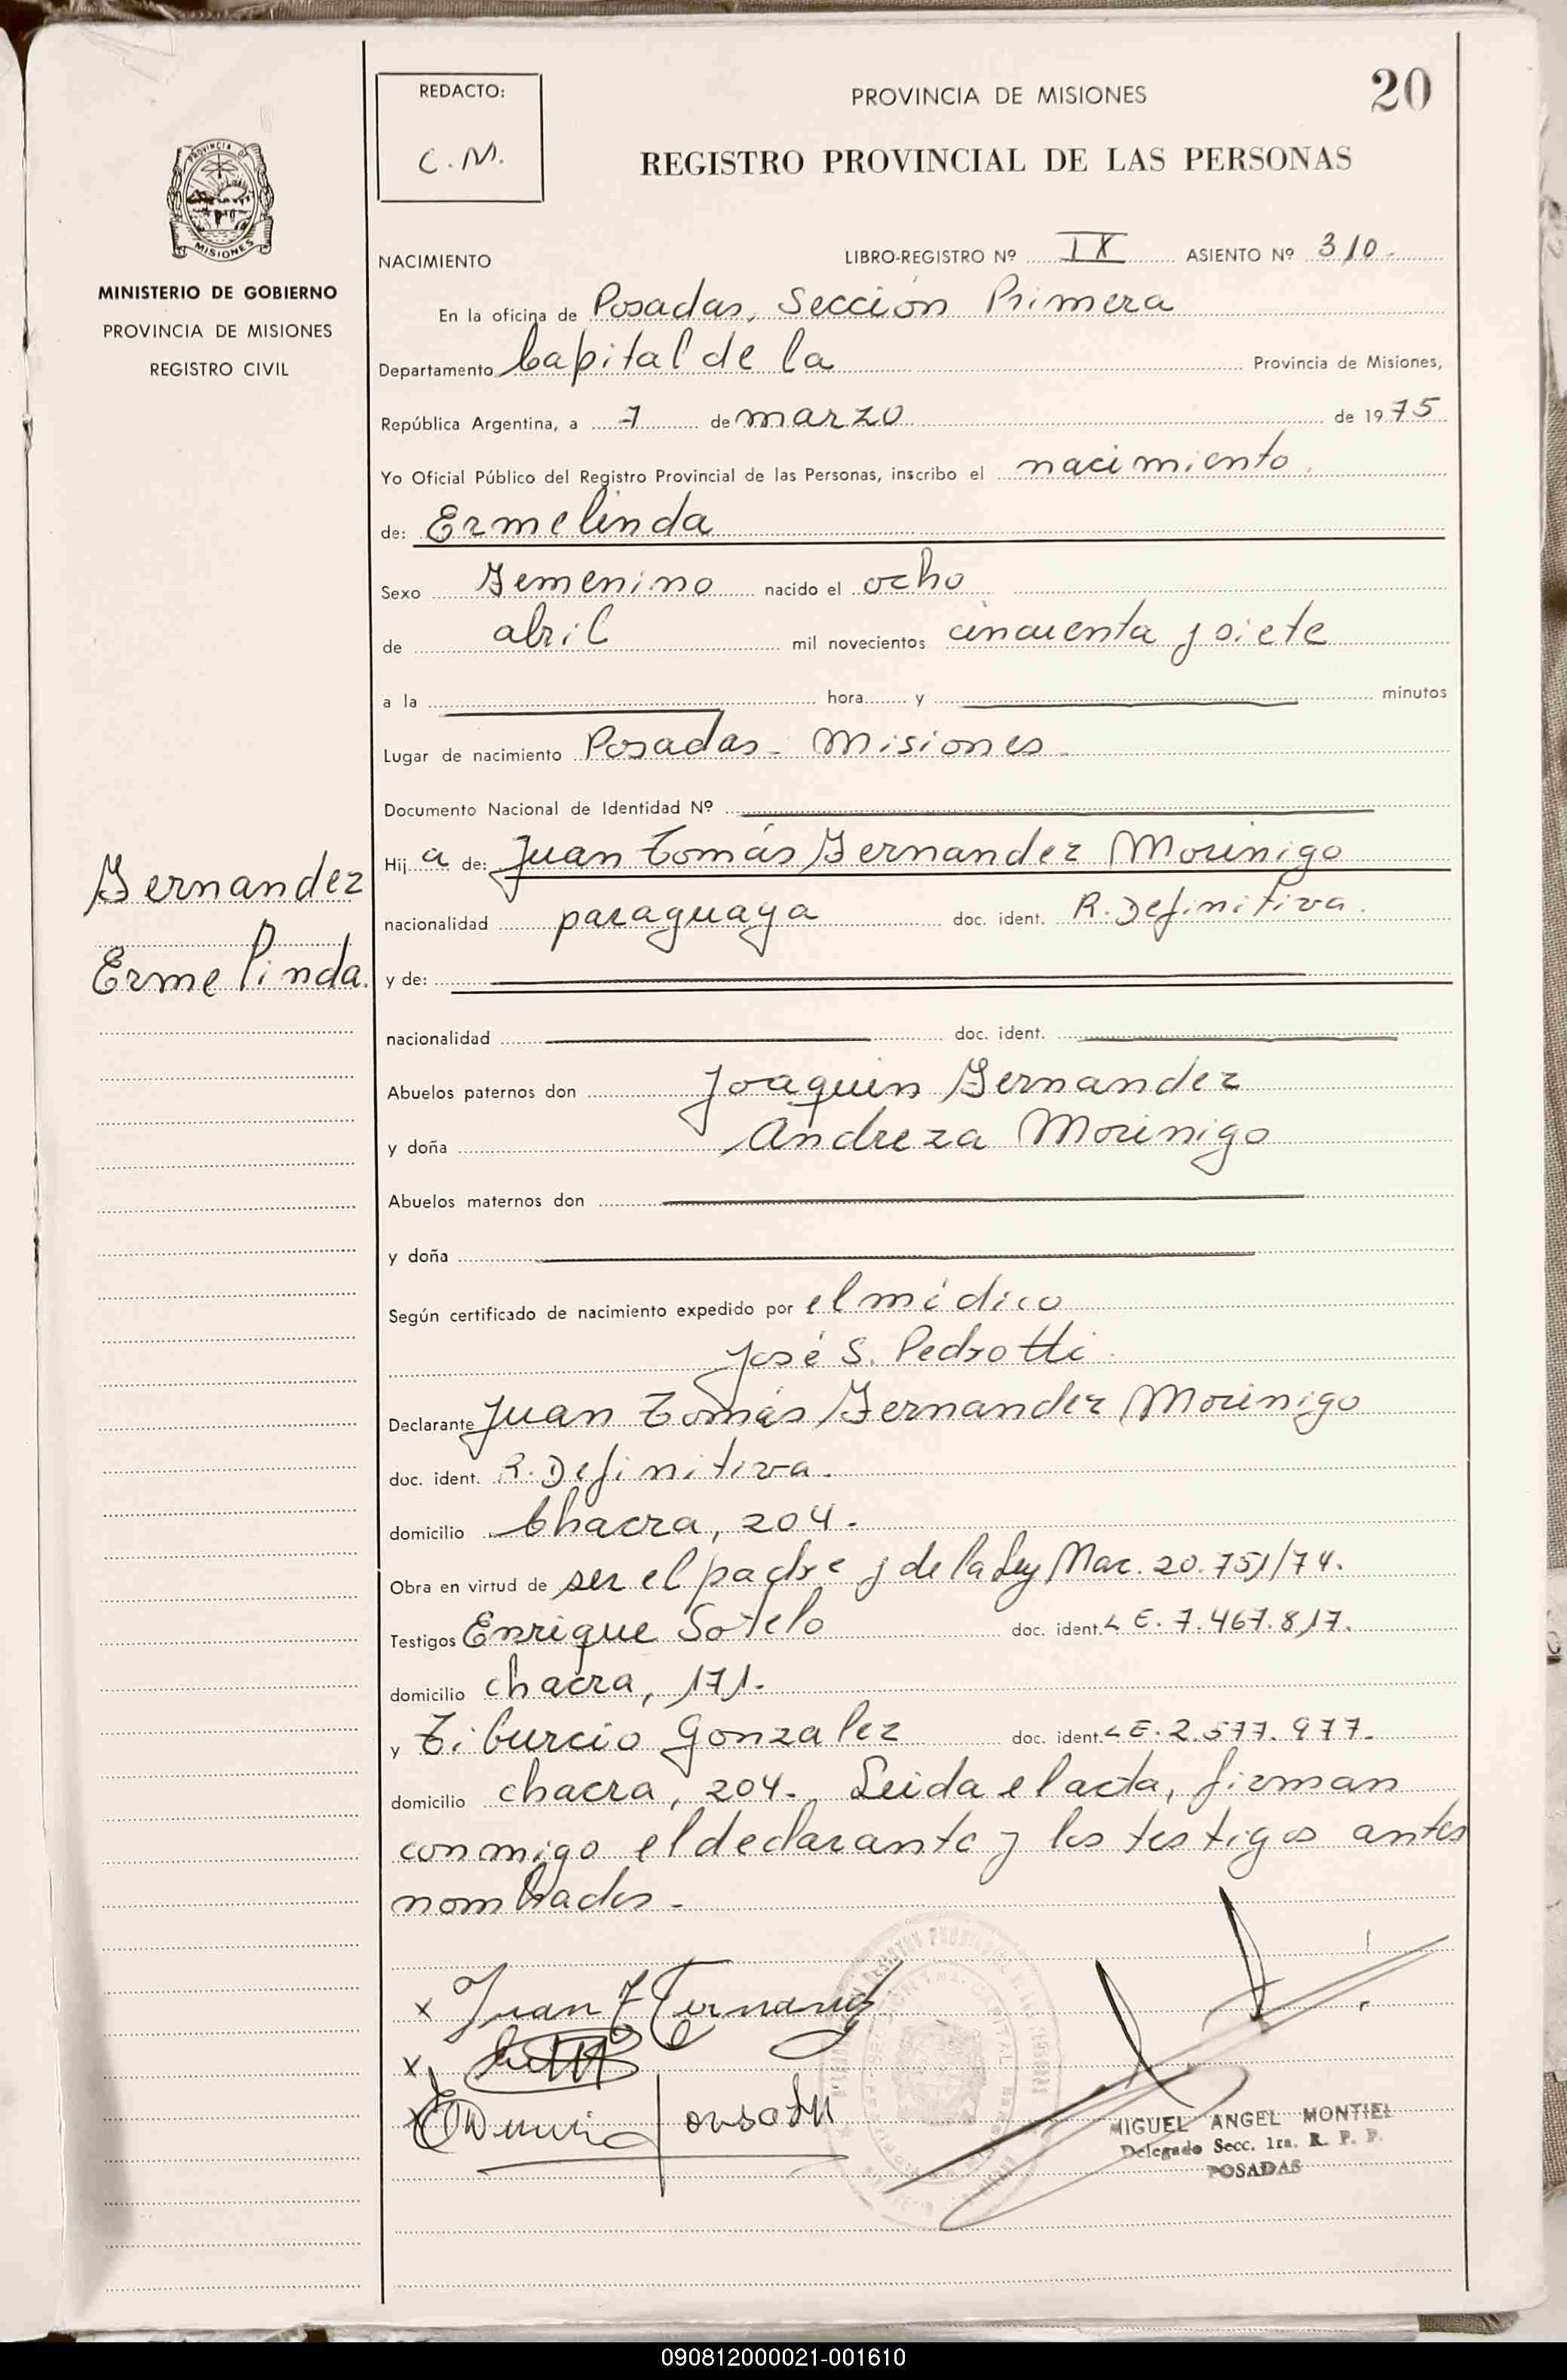 20
REDACTO:
C. M.
PROVINCIA DE MISIONES
REGISTRO PROVINCIAL DE LAS PERSONAS
PROVINCIA DE
MISIONES
MINISTERIO DE GOBIERNO
PROVINCIA DE MISIONES
REGISTRO CIVIL
NACIMIENTO LIBRO-REGISTRO Nº IX ASIENTO Nº 310.
En la oficina de Posadas, Sección Primera
Departamento Capital de la Provincia de Misiones,
República Argentina, a 7 de marzo de 1975
Yo Oficial Público del Registro Provincial de las Personas, inscribo el nacimiento
de: Ermelinda
Sexo Femenino nacido el ocho
de abril mil novecientos cincuenta y siete
a la hora y minutos
Lugar de nacimiento Posadas - Misiones -
Documento Nacional de Identidad Nº
Fernandez
Ermelinda.
Hij a de: Juan Tomás Fernandez Morinigo
nacionalidad paraguaya doc. ident. R. Definitiva.
y de:
nacionalidad doc. ident.
Abuelos paternos don Joaquin Fernandez
y doña Andreza Morinigo
Abuelos maternos don
y doña
Según certificado de nacimiento expedido por el médico
José S. Pedrotti
Declarante Juan Tomás Fernandez Morinigo
doc. ident. R. Definitiva.
domicilio Chacra, 204.
Obra en virtud de ser el padre y de la Ley Nac. 20.751/74.
Testigos Enrique Sotelo doc. ident. L E. 7.467.817.
domicilio chacra, 171.
y Tiburcio Gonzalez doc. ident. L E. 2.577.977.
domicilio chacra, 204. Leida el acta, firman
conmigo el declarante y los testigos antes
nombrados.
x Juan T Fernandez
x
MIGUEL ANGEL MONTIEL
Delegado Secc. 1ra. R. P. P.
POSADAS
090812000021-001610